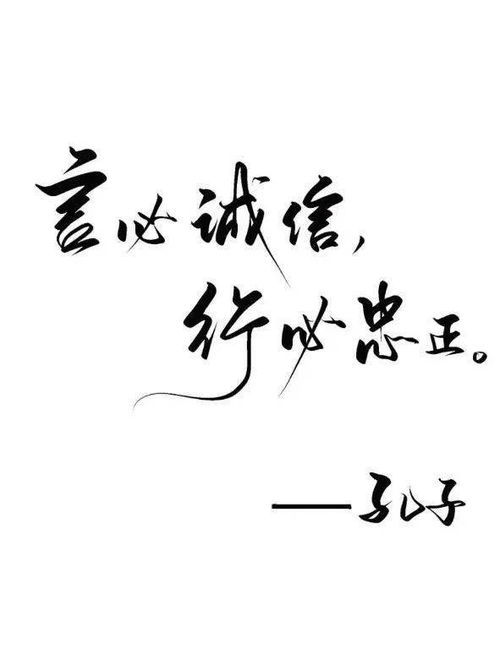 言必诚信,
行必忠正。
——孔子